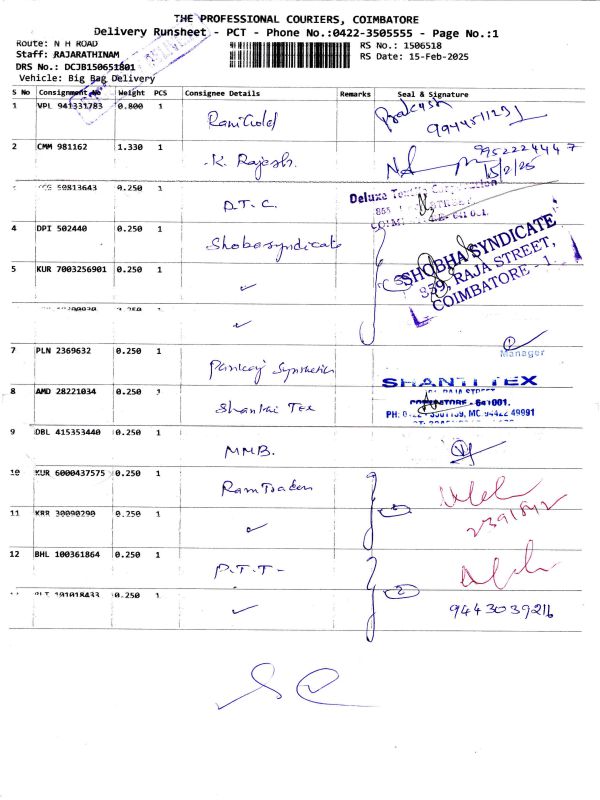 THE PROFESSIONAL COURIERS, COIMBATORE
Delivery Runsheet - PCT - Phone No.:0422-3505555 - Page No.:1
Route: N H ROAD RS No.: 1506518
Staff: RAJARATHINAM RS Date: 15-Feb-2025
DRS No.: DCJB150651801
Vehicle: Big Bag Delivery
S No Consignment No Weight PCS Consignee Details Remarks Seal & Signature
1 VPL 941331783 0.800 1 RamiGold Prakash
2 CMM 981162 1.330 1 K. Rajesh. 9952224447
15/2/25
50813643 0.250 1 D.T.C. Deluxe
4 DPI 502440 0.250 1 Shobasyndicate SHOBHA SYNDICATE
5 KUR 7003256901 0.250 1 ✓ 859, RAJA STREET,
COIMBATORE - 1.
✓
7 PLN 2369632 0.250 1 Pankaj Synthetics Manager
8 AMD 28221034 0.250 1 Shanthi Tex SHANTI TEX
RAJA STREET
COIMBATORE - 641001.
MC 94422 49991
9 DBL 415353440 0.250 1 MMB.
10 KUR 6000437575 0.250 1 RamTraders
11 KRR 30090290 0.250 1 ✓ 2
12 BHL 100361864 0.250 1 P.T.T- 2
101018433 0.250 1 ✓ 9443039216